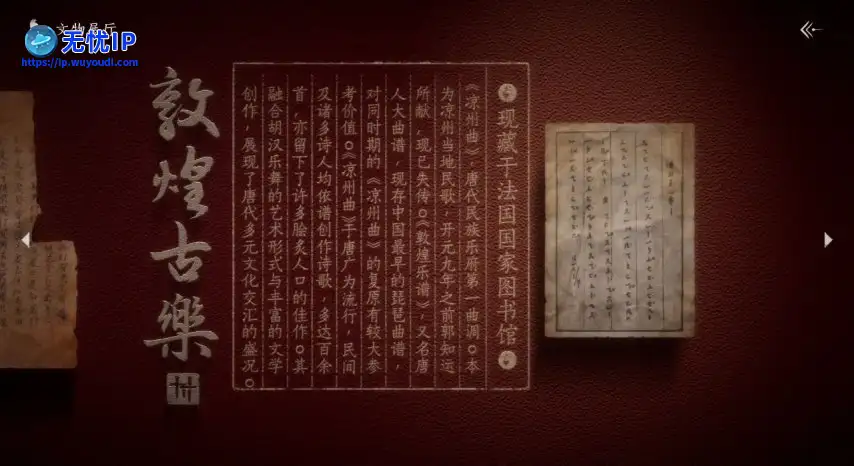 文物展厅
无忧IP
https://ip.wuyoudl.com
现藏于法国国家图书馆
《凉州曲》，唐代民族乐府第一曲调。本
为凉州当地民歌，开元九年之前郭知运
所献，现已失传。《敦煌乐谱》，又名唐
人大曲谱，现存中国最早的琵琶曲谱，
对同时期的《凉州曲》的复原有较大参
考价值。《凉州曲》于唐广为流行，民间
及诸多诗人均依谱创作诗歌，多达百余
首，亦留下了许多脍炙人口的佳作。其
融合胡汉乐舞的艺术形式与丰富的文学
创作，展现了唐代多元文化交汇的盛况。
敦煌古樂